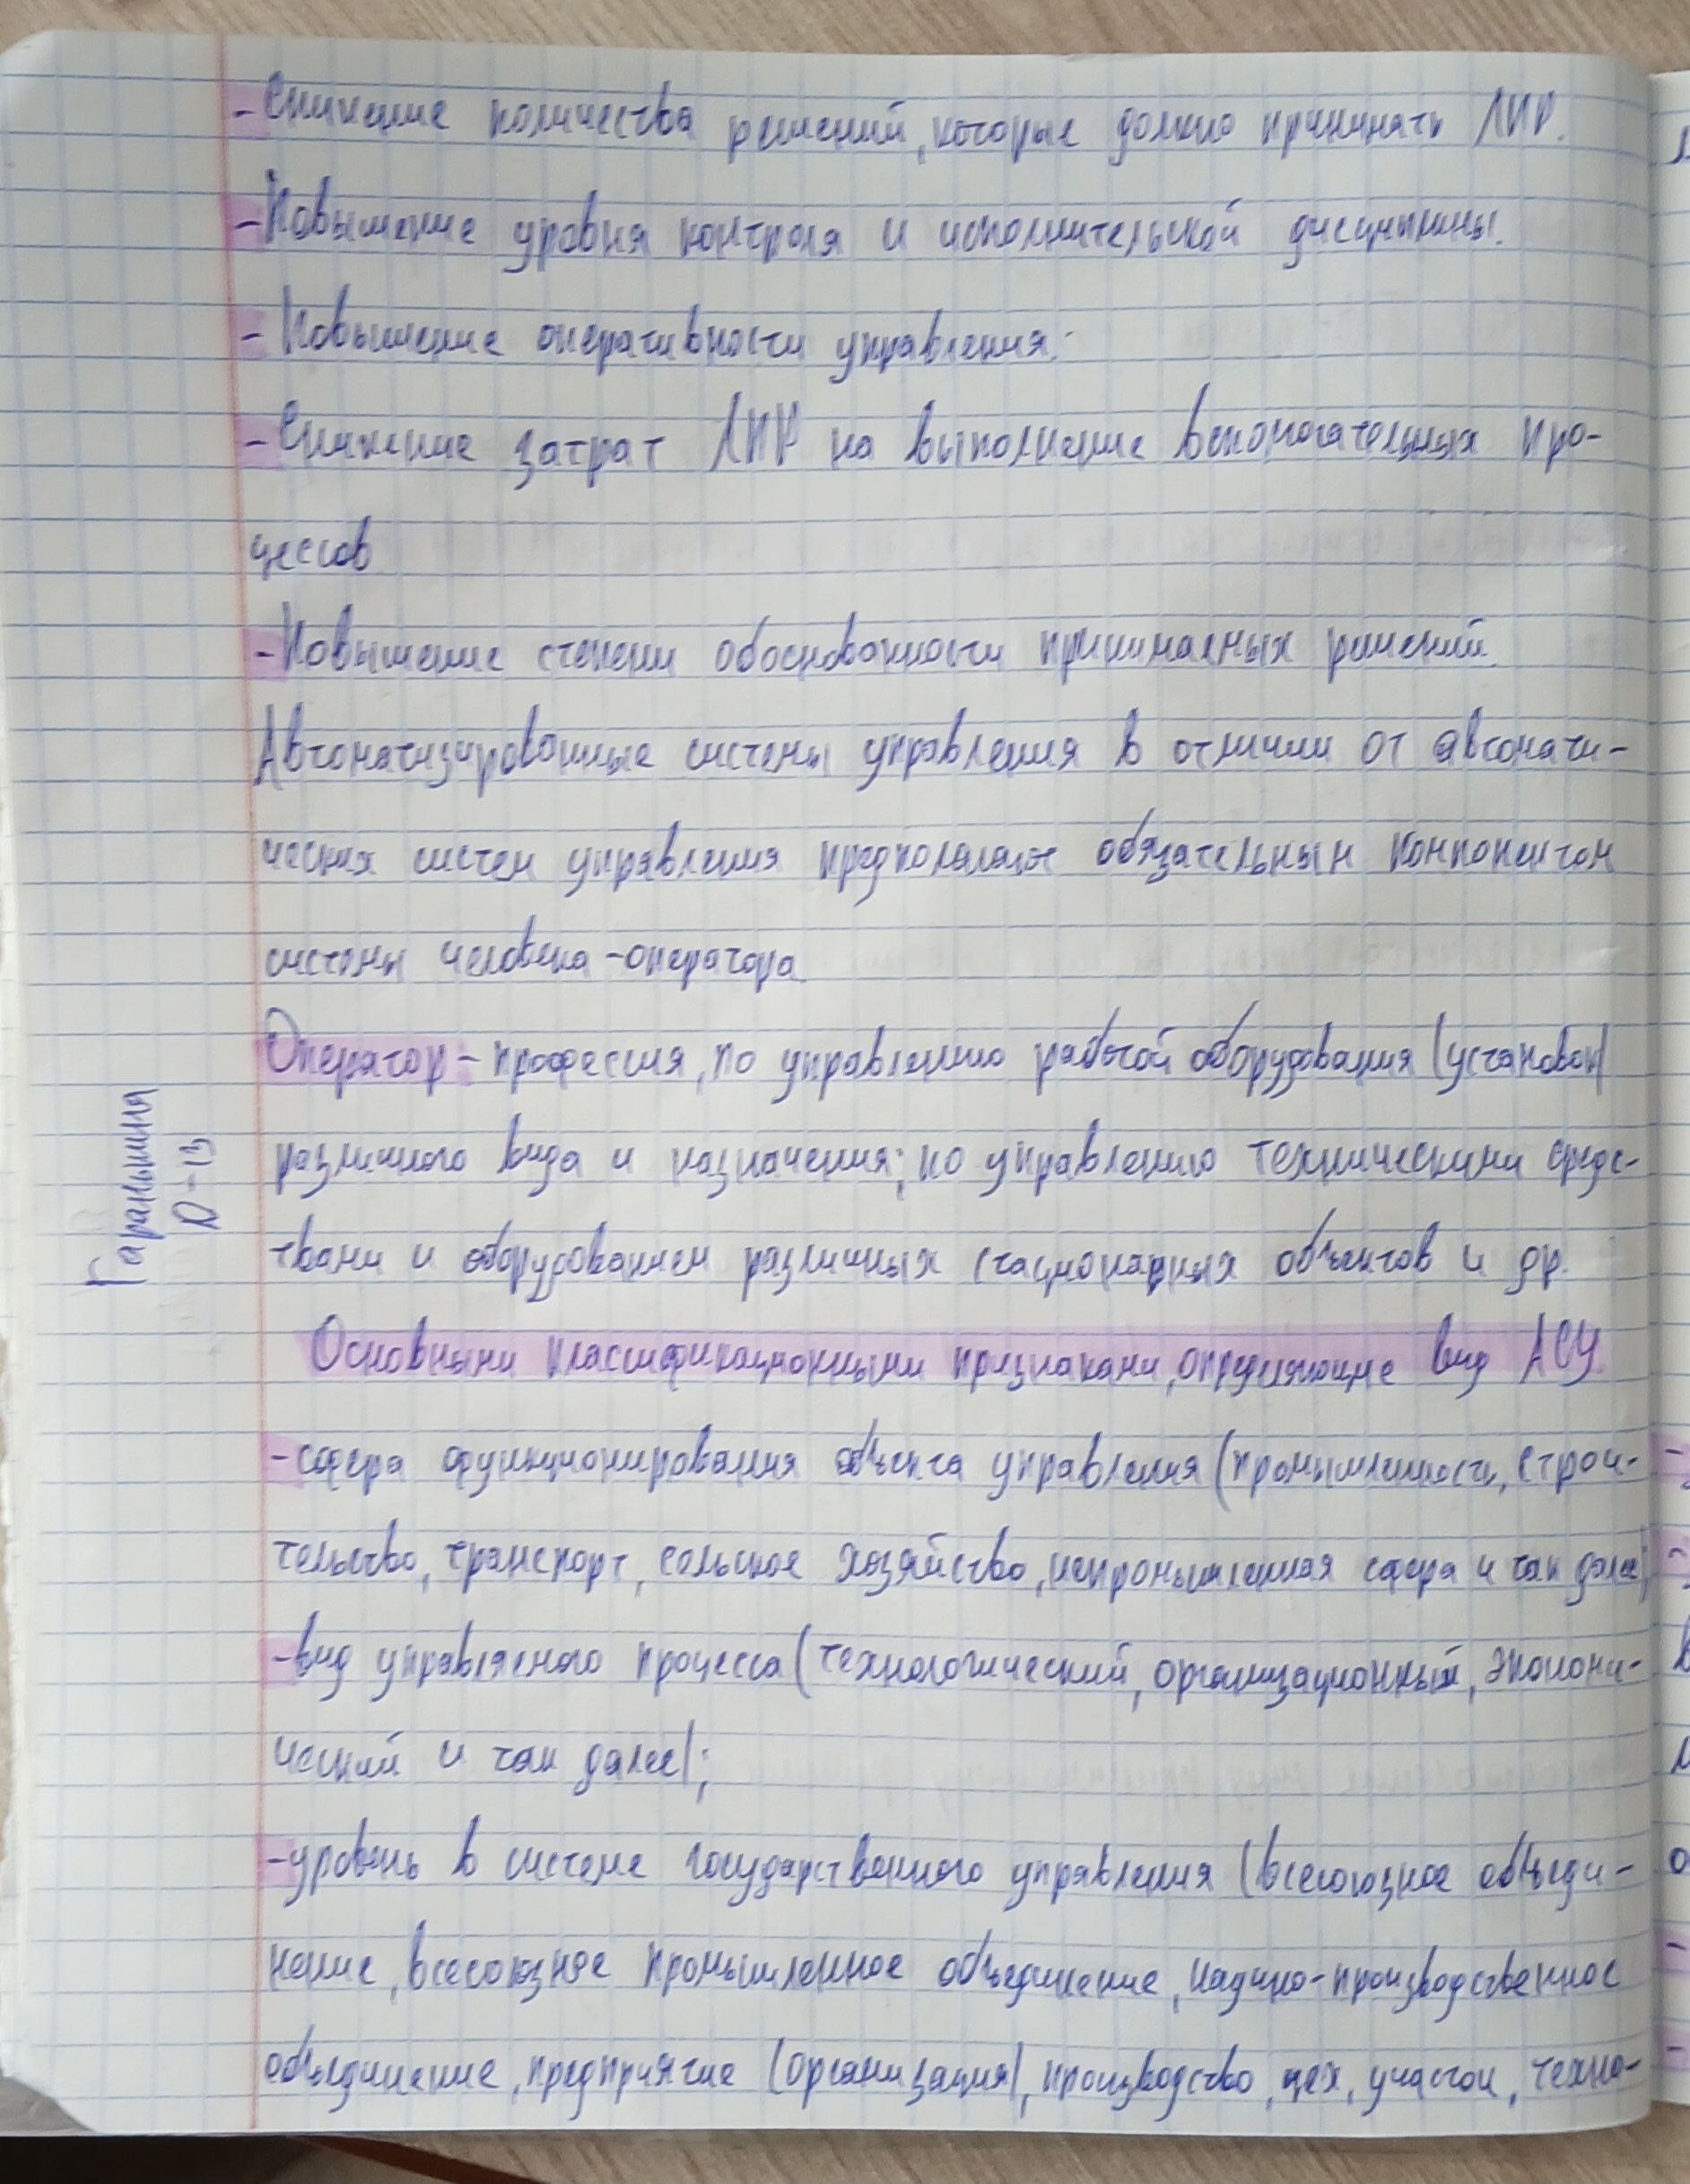 - Снижение количества решений, которые должно принимать ЛПР.
- Повышение уровня контроля и исполнительской дисциплины.
- Повышение оперативности управления.
- Снижение затрат ЛПР на выполнение вспомогательных про-
цессов
- Повышение степени обоснованности принимаемых решений.
Автоматизированные системы управления в отличии от автомати-
ческих систем управления предполагают обязательным компонентом
системы человека-оператора
Оператор - профессия, по управлению работой оборудования (установок)
различного вида и назначения; по управлению техническими средс-
твами и оборудованием различных стационарных объектов и др.
Основными классификационными признаками, определяющие вид АСУ
- сфера функционирования объекта управления (промышленность, строи-
тельство, транспорт, сельское хозяйство, непромышленная сфера и так далее);
- вид управляемого процесса (технологический, организационный, экономи-
ческий и так далее);
- уровень в системе государственного управления (всесоюзное объеди-
нение, всесоюзное промышленное объединение, научно-производственное
объединение, предприятие (организация), производство, цех, участок, техно-
Гаранькина
D-13